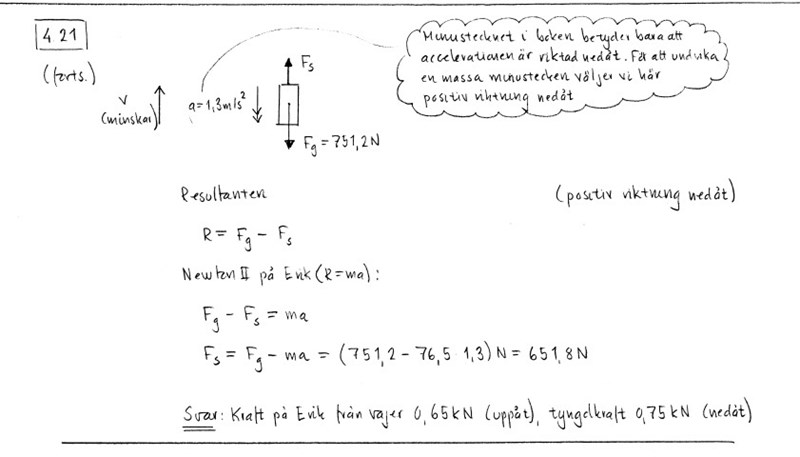 4.21
(forts.)
v
(minskar)
a = 1,3 m/s²
Fs
Fg = 751,2 N
Minustecknet i boken betyder bara att
accelerationen är riktad nedåt. För att undvika
en massa minustecken väljer vi här
positiv riktning nedåt
Resultanten (positiv riktning nedåt)
R = Fg - Fs
Newton II på Erik (R = ma):
Fg - Fs = ma
Fs = Fg - ma = (751,2 - 76,5 · 1,3) N = 651,8 N
Svar: Kraft på Erik från vajer 0,65 kN (uppåt), tyngdkraft 0,75 kN (nedåt)